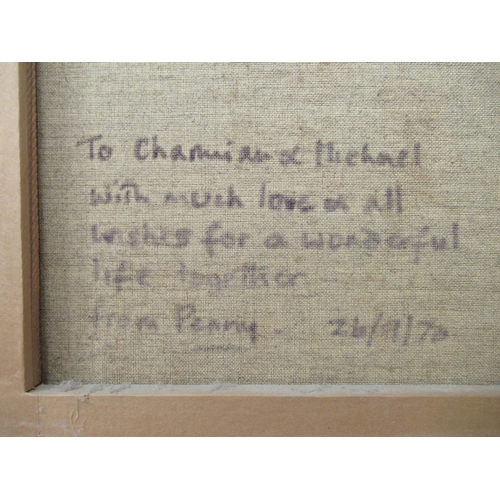 To Charmian & Michael
with much love & all
wishes for a wonderful
life together
from Penny. 26/9/70